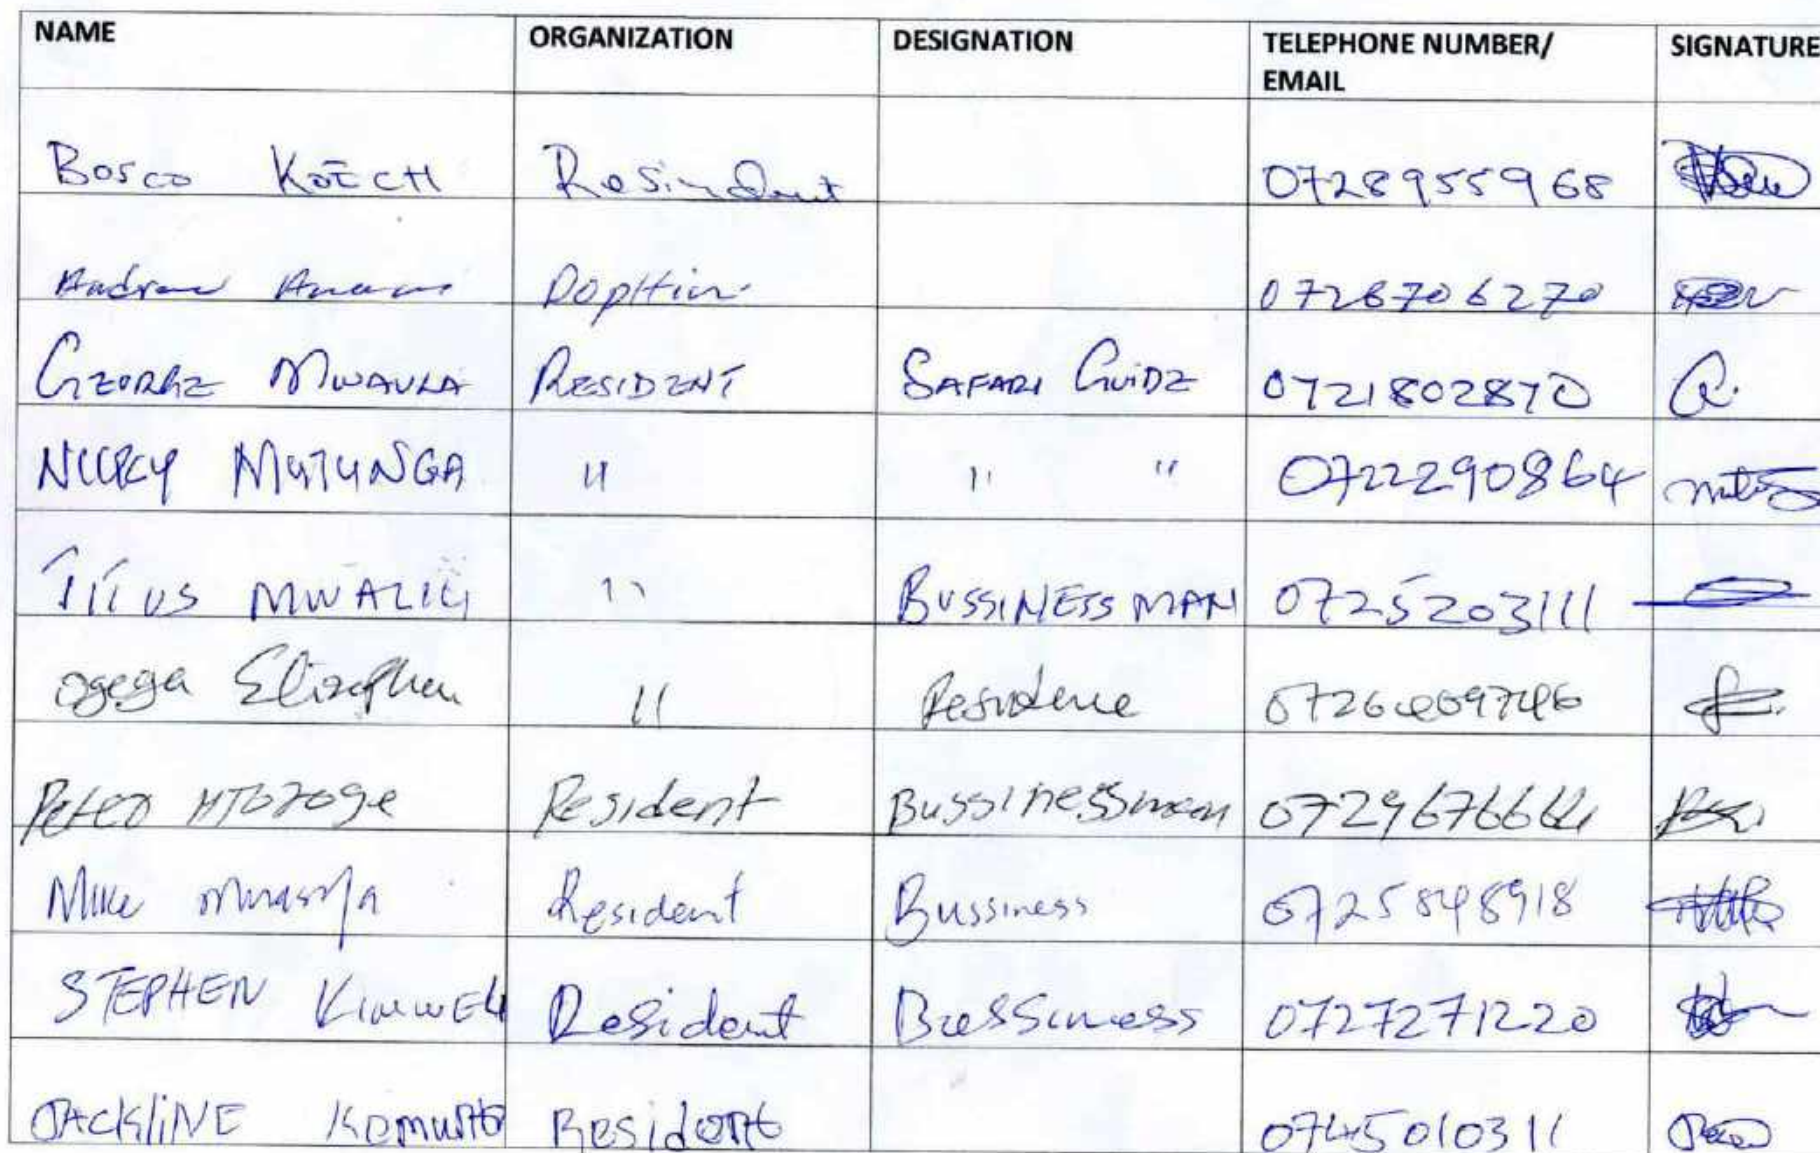 NAME ORGANIZATION DESIGNATION TELEPHONE NUMBER/ EMAIL SIGNATURE
Bosco KOECH Resindent 0728955968
Andrew 0726706270
GEORGE MWAURA RESIDENT SAFARI GUIDE 0721802870
MUTUNGA " " " 0722290864
TITUS " BUSSINESS MAN 0725203111
Ogega " Residence
Peter Resident Bussinessman
Mike Resident Bussiness 0725848918
STEPHEN Resident Bussiness 0727271220
JACKLINE Resident 0745010311